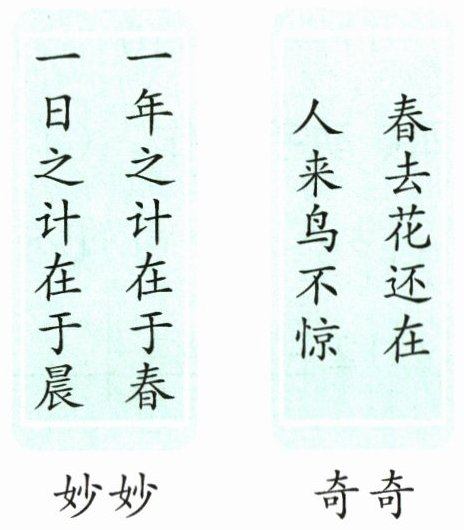 一年之计在于春
一日之计在于晨
妙妙
春去花还在
人来鸟不惊
奇奇